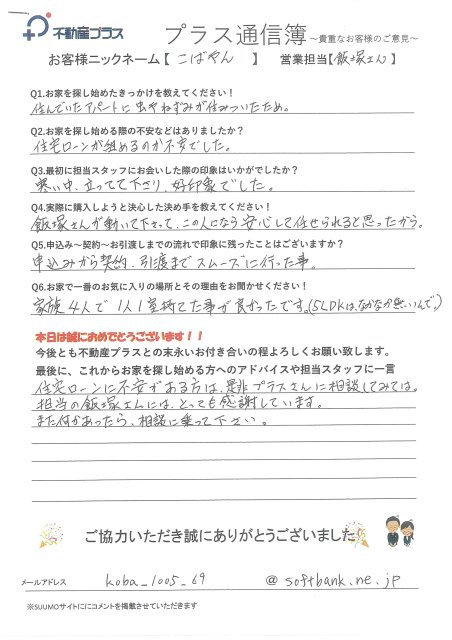 不動産プラス プラス通信簿 ～貴重なお客様のご意見～
お客様ニックネーム【 こばやん 】 営業担当【飯塚さん】
Q1.お家を探し始めたきっかけを教えてください！
住んでいたアパートに虫やねずみが住みついたため。
Q2.お家を探し始める際の不安などはありましたか？
住宅ローンが組めるのか不安でした。
Q3.最初に担当スタッフにお会いした際の印象はいかがでしたか？
寒い中、立ってて下さり、好印象でした。
Q4.実際に購入しようと決心した決め手を教えてください！
飯塚さんが動いて下さって、この人になら安心して任せられると思ったから。
Q5.申込み～契約～お引渡しまでの流れで印象に残ったことはございますか？
申込みから契約、引渡までスムーズに行った事。
Q6.お家で一番のお気に入りの場所とその理由をお聞かせください！
家族4人で1人1室持てた事が良かったです。(5LDKは、なかなか無いんで)
本日は誠におめでとうございます！！
今後とも不動産プラスとの末永いお付き合いの程よろしくお願い致します。
最後に、これからお家を探し始める方へのアドバイスや担当スタッフに一言
住宅ローンに不安がある方は、是非プラスさんに相談してみては。
担当の飯塚さんには、とっても感謝しています。
また何かあったら、相談に乗って下さい。
ご協力いただき誠にありがとうございました
メールアドレス koba_1005_69 @ softbank.ne.jp
※SUUMOサイトににコメントを掲載させていただきます